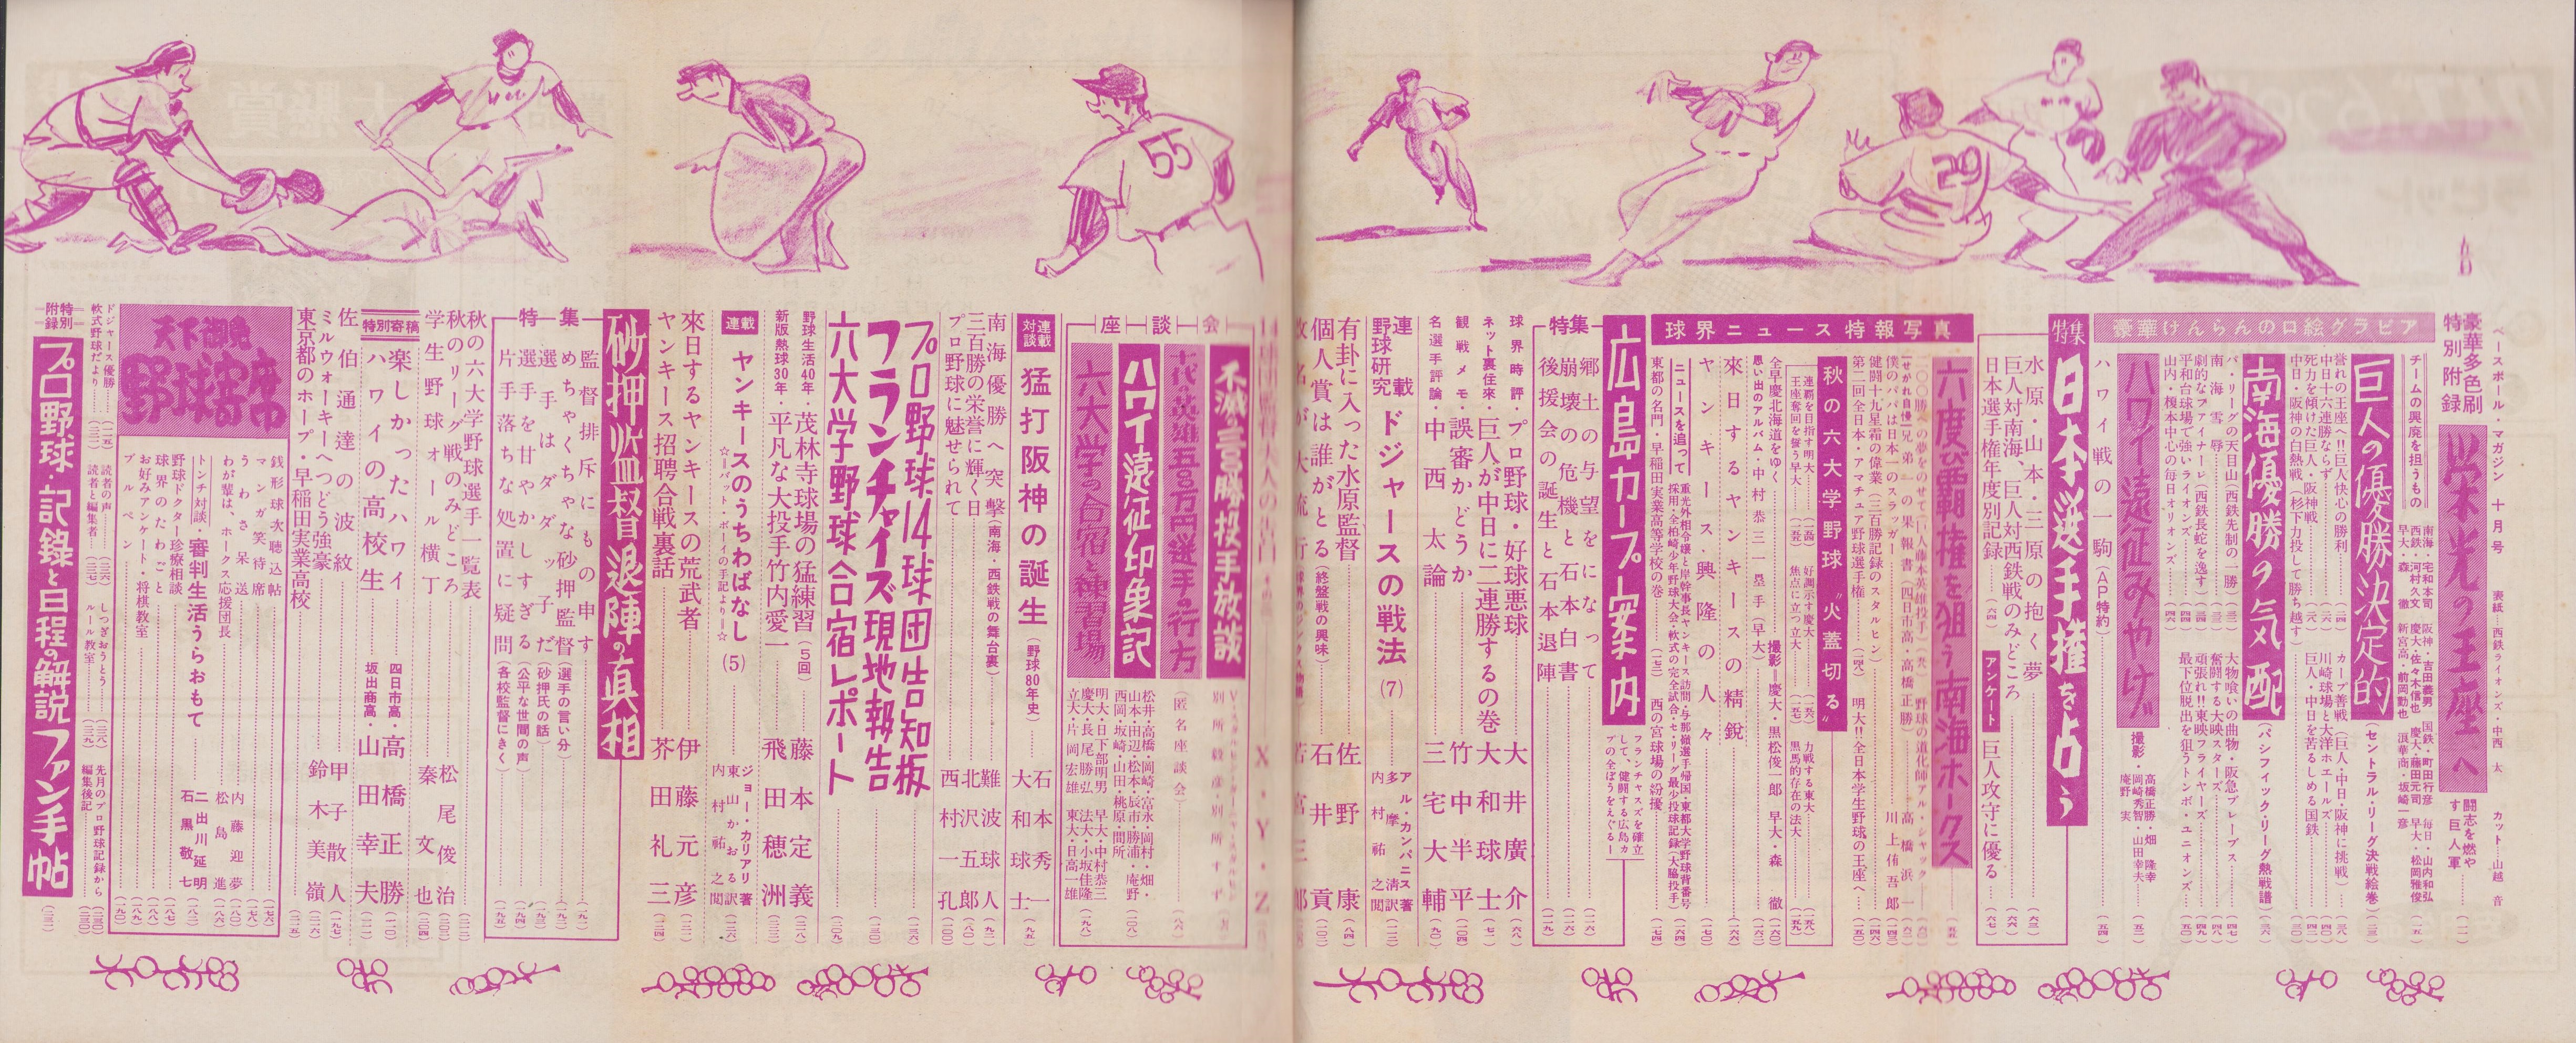 ベースボール・マガジン 十月号
表紙―西鉄ライオンズ・中西 太
カット―山越 音
豪華多色刷
特別附録
栄光の王座へ
闘志を燃やす巨人軍
(一一)
豪華けんらんの口絵グラビア
チームの興廃を担うもの
南海・宅和本司
西鉄・河村久文
早大・森 徹
阪神・吉田義男
慶大・佐々木信也
新宮高・前岡勤也
国鉄・町田行彦
慶大・藤田元司
浪華商・坂崎一彦
毎日・山内和弘
早大・松岡雅俊
(一五)
巨人の優勝決定的
(セントラル・リーグ決戦絵巻)
(二三)
誉れの王座へ!!巨人快心の勝利
中日十六連勝ならず
死力を傾けた巨人・阪神戦
中日・阪神の白熱戦(杉下力投して勝ち越す)
カープ善戦(巨人・中日・阪神に挑戦)
川崎球場と大洋ホエールズ
巨人・中日を苦るしめる国鉄
南海優勝の気配
(パシフィック・リーグ熱戦譜)
(三六)
パ・リーグの天目山(西鉄先制の一勝)
南海雪辱
劇的なファイナーレ(西鉄長蛇を逸す)
平和台球場で強いライオンズ
山内・榎本中心の毎日オリオンズ
大物喰いの曲物・阪急ブレーブス
奮闘する大映スターズ
頑張れ!!東映フライヤーズ
最下位脱出を狙うトンボ・ユニオンズ
ハワイ遠征みやげ
撮影・高橋正勝・畑 隆幸
岡崎秀智・山田幸夫
庵野 実
(五二)
ハワイ戦の一駒(AP特約)
(五四)
特集
日本選手権を占う
水原・山本・三原の抱く夢
(六三)
巨人対南海、巨人対西鉄戦のみどころ
日本選手権年度別記録
(六四)
アンケート
巨人攻守に優る
(六七)
球界ニュース特報写真
六度覇権を狙う南海ホークス
"せがれ自慢"兄弟の果報書(四日市高・高橋正勝)
高橋浜一
僕のパパは日本一のスラッガー
川上侑吾郎
(一四三)
健闘十九星霜の偉業(三百勝記録のスタルヒン)
(一四六)
第二回全日本・アマチュア野球選手権
明大!!全日本学生野球の王座へ
(一五〇)
野球の道化師アル・シャック
秋の六大学野球"火蓋切る"
連覇を目指す明大
王座奪回を誓う早大
好調示す慶大
焦点に立つ立大
力戦する東大
黒馬的存在の法大
全早慶北海道をゆく
撮影=慶大・黒松俊一郎 早大・森 徹
(一六〇)
思い出のアルバム・中村恭三一塁手(早大)
(一六三)
来日するヤンキースの精鋭
(一六六)
ヤンキース・興隆の人々
(一七〇)
ニュースを追って
東都の名門・早稲田実業高等学校の巻
西の宮球場の紛擾
(一七四)
広島カープ案内
フランチャズを確立して、健闘する広島カープの全ぼうをえぐる!
特集
郷土の与望をになって
(一二六)
崩壊の危機と石本白書
後援会の誕生と石本退陣
(一二九)
球界時評・プロ野球・好球悪球
大井廣介
(六八)
ネット裏往來・巨人が中日に二連勝するの巻
大和球士
(七二)
観戦メモ・誤審かどうか
竹中半平
(一〇四)
名選手評論・中西太論
三宅大輔
(九〇)
連載
野球研究
ドジャースの戦法(7)
アル・カンパニス著
多摩清訳
内村祐之閲
(一二三)
有卦に入った水原監督
佐野 康
(八四)
個人賞は誰がとる(終盤戦の興味)
石井 貢
(一〇二)
X・Y・Z
座談会
不滅の三百勝投手放談
別所毅彦・別所すず
六大学の合宿と練習場
ハワイ遠征印象記
(匿名座談会)
(八六)
松井・高橋・岡崎・富永・岡村・畑・
山本・田辺・松本・辰市・勝浦・庵野・
西岡・坂崎・山田・桃原・間所
(二〇八)
明大・日下部明男
慶大・長尾勝弘
立大・片岡宏雄
早大・中村恭三
法大・小坂佳隆
東大・日高一雄
(一九八)
連載対談
猛打阪神の誕生
(野球80年史)
石本秀一
大和球士
(九五)
南海優勝へ突撃(南海・西鉄戦の舞台裏)
難波球人
(九二)
三百勝の栄誉に輝く日
北沢五郎
(八〇)
プロ野球に魅せられて
西村一孔
(一〇〇)
プロ野球14球団告知板
(一三六)
フランチャイズ現地報告
(一三〇)
六大学野球合宿レポート
(二〇九)
野球生活40年・茂林寺球場の猛練習(5回)
藤本定義
(二二八)
新版熱球30年・平凡な大投手竹内愛一
飛田穂洲
(二三二)
連載
ヤンキースのうちわばなし(5)
☆=バット・ボーイの手記より=☆
ジョー・カリアリ著
東山かおる訳
内村祐之閲
(二三六)
來日するヤンキースの荒武者
伊藤元彦
(二二二)
ヤンキース招聘合戦裏話
芥田礼三
(二二四)
砂押監督退陣の真相
特集
監督排斥にもの申す(選手の言い分)
(一九一)
めちゃくちゃな砂押監督
選手はダダッ子だ(砂押氏の話)
(一九三)
選手を甘やかしすぎる(公平な世間の声)
(一九四)
片手落ちな処置に疑問(各校監督にきく)
(一九五)
秋の六大学野球選手一覧表
(二一二)
秋のリーグ戦のみどころ
松尾俊治
(二〇三)
学生野球オール横丁
秦 文也
(二〇四)
特別寄稿
楽しかったハワイ
四日市高・高橋正勝
(二一〇)
ハワイの高校生
坂出商高・山田幸夫
(二一一)
佐伯通達の波紋
甲子散人
(一九七)
ミルウォーキーへつどう強豪
鈴木美嶺
(二一六)
東京都のホープ・早稲田実業高校
(二一五)
天下御免
野球寄席
銭形球次聴込帖
(一七六)
マンガ笑待席
(一七八)
うわさ呆送
内藤迎夢
(一八〇)
わが輩は、ホークス応援団長
松島 進
(一八六)
トンチ対談
審判生活うらおもて
二出川延明
石黒敬七
(一八二)
野球ドクター珍療相談
(一八七)
球界のたわごと
お好みアンケート・将棋教室
ブルペン
(一九〇)
ドジャース優勝
軟式野球だより
読者の声
読者と編集者
しつぎおうとう
ルール教室
先月のプロ野球記録から
編集後記
特別附録
プロ野球・記録と日程の解説ファン手帖
(二三一)
55
29